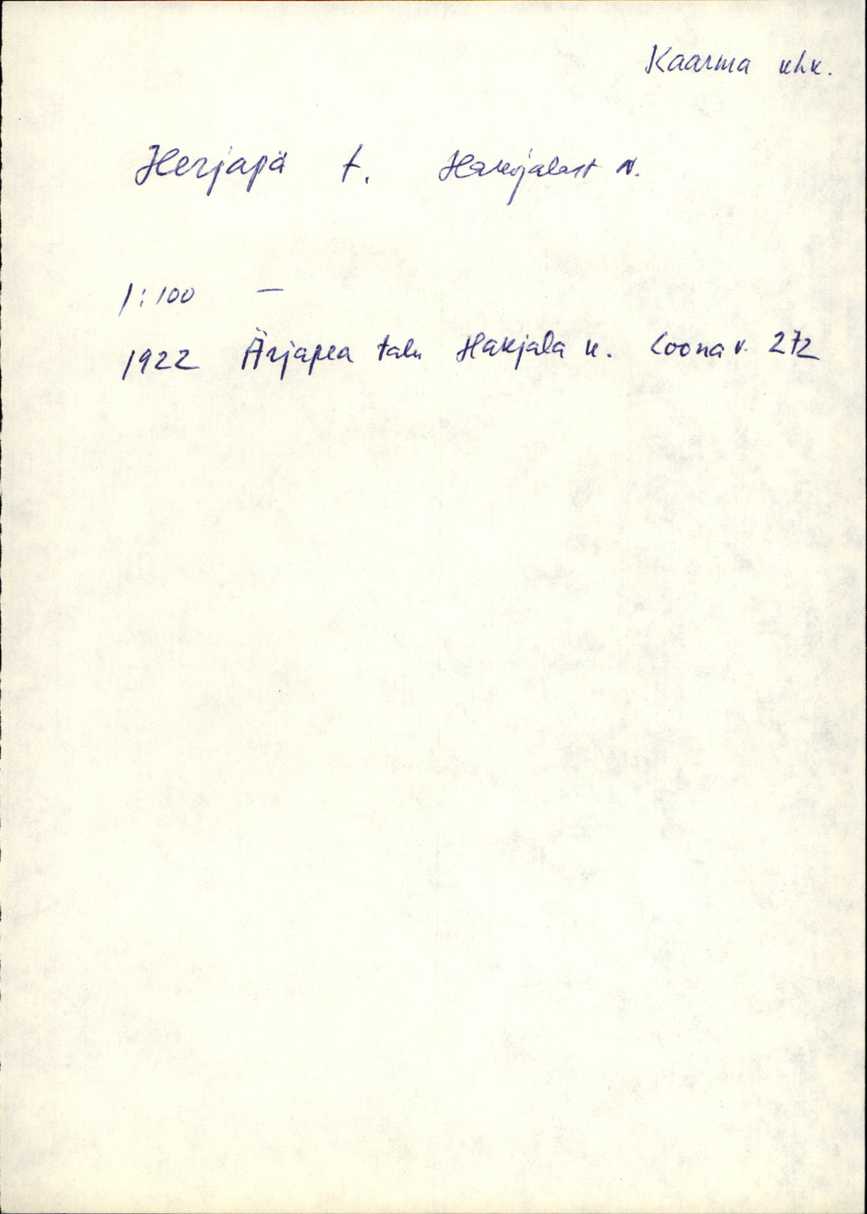 Kaarma khk.
Herjapä t. Hakjalast N.
1:100 —
1922 Ärjapea talu Hakjala k. Loona v. 272